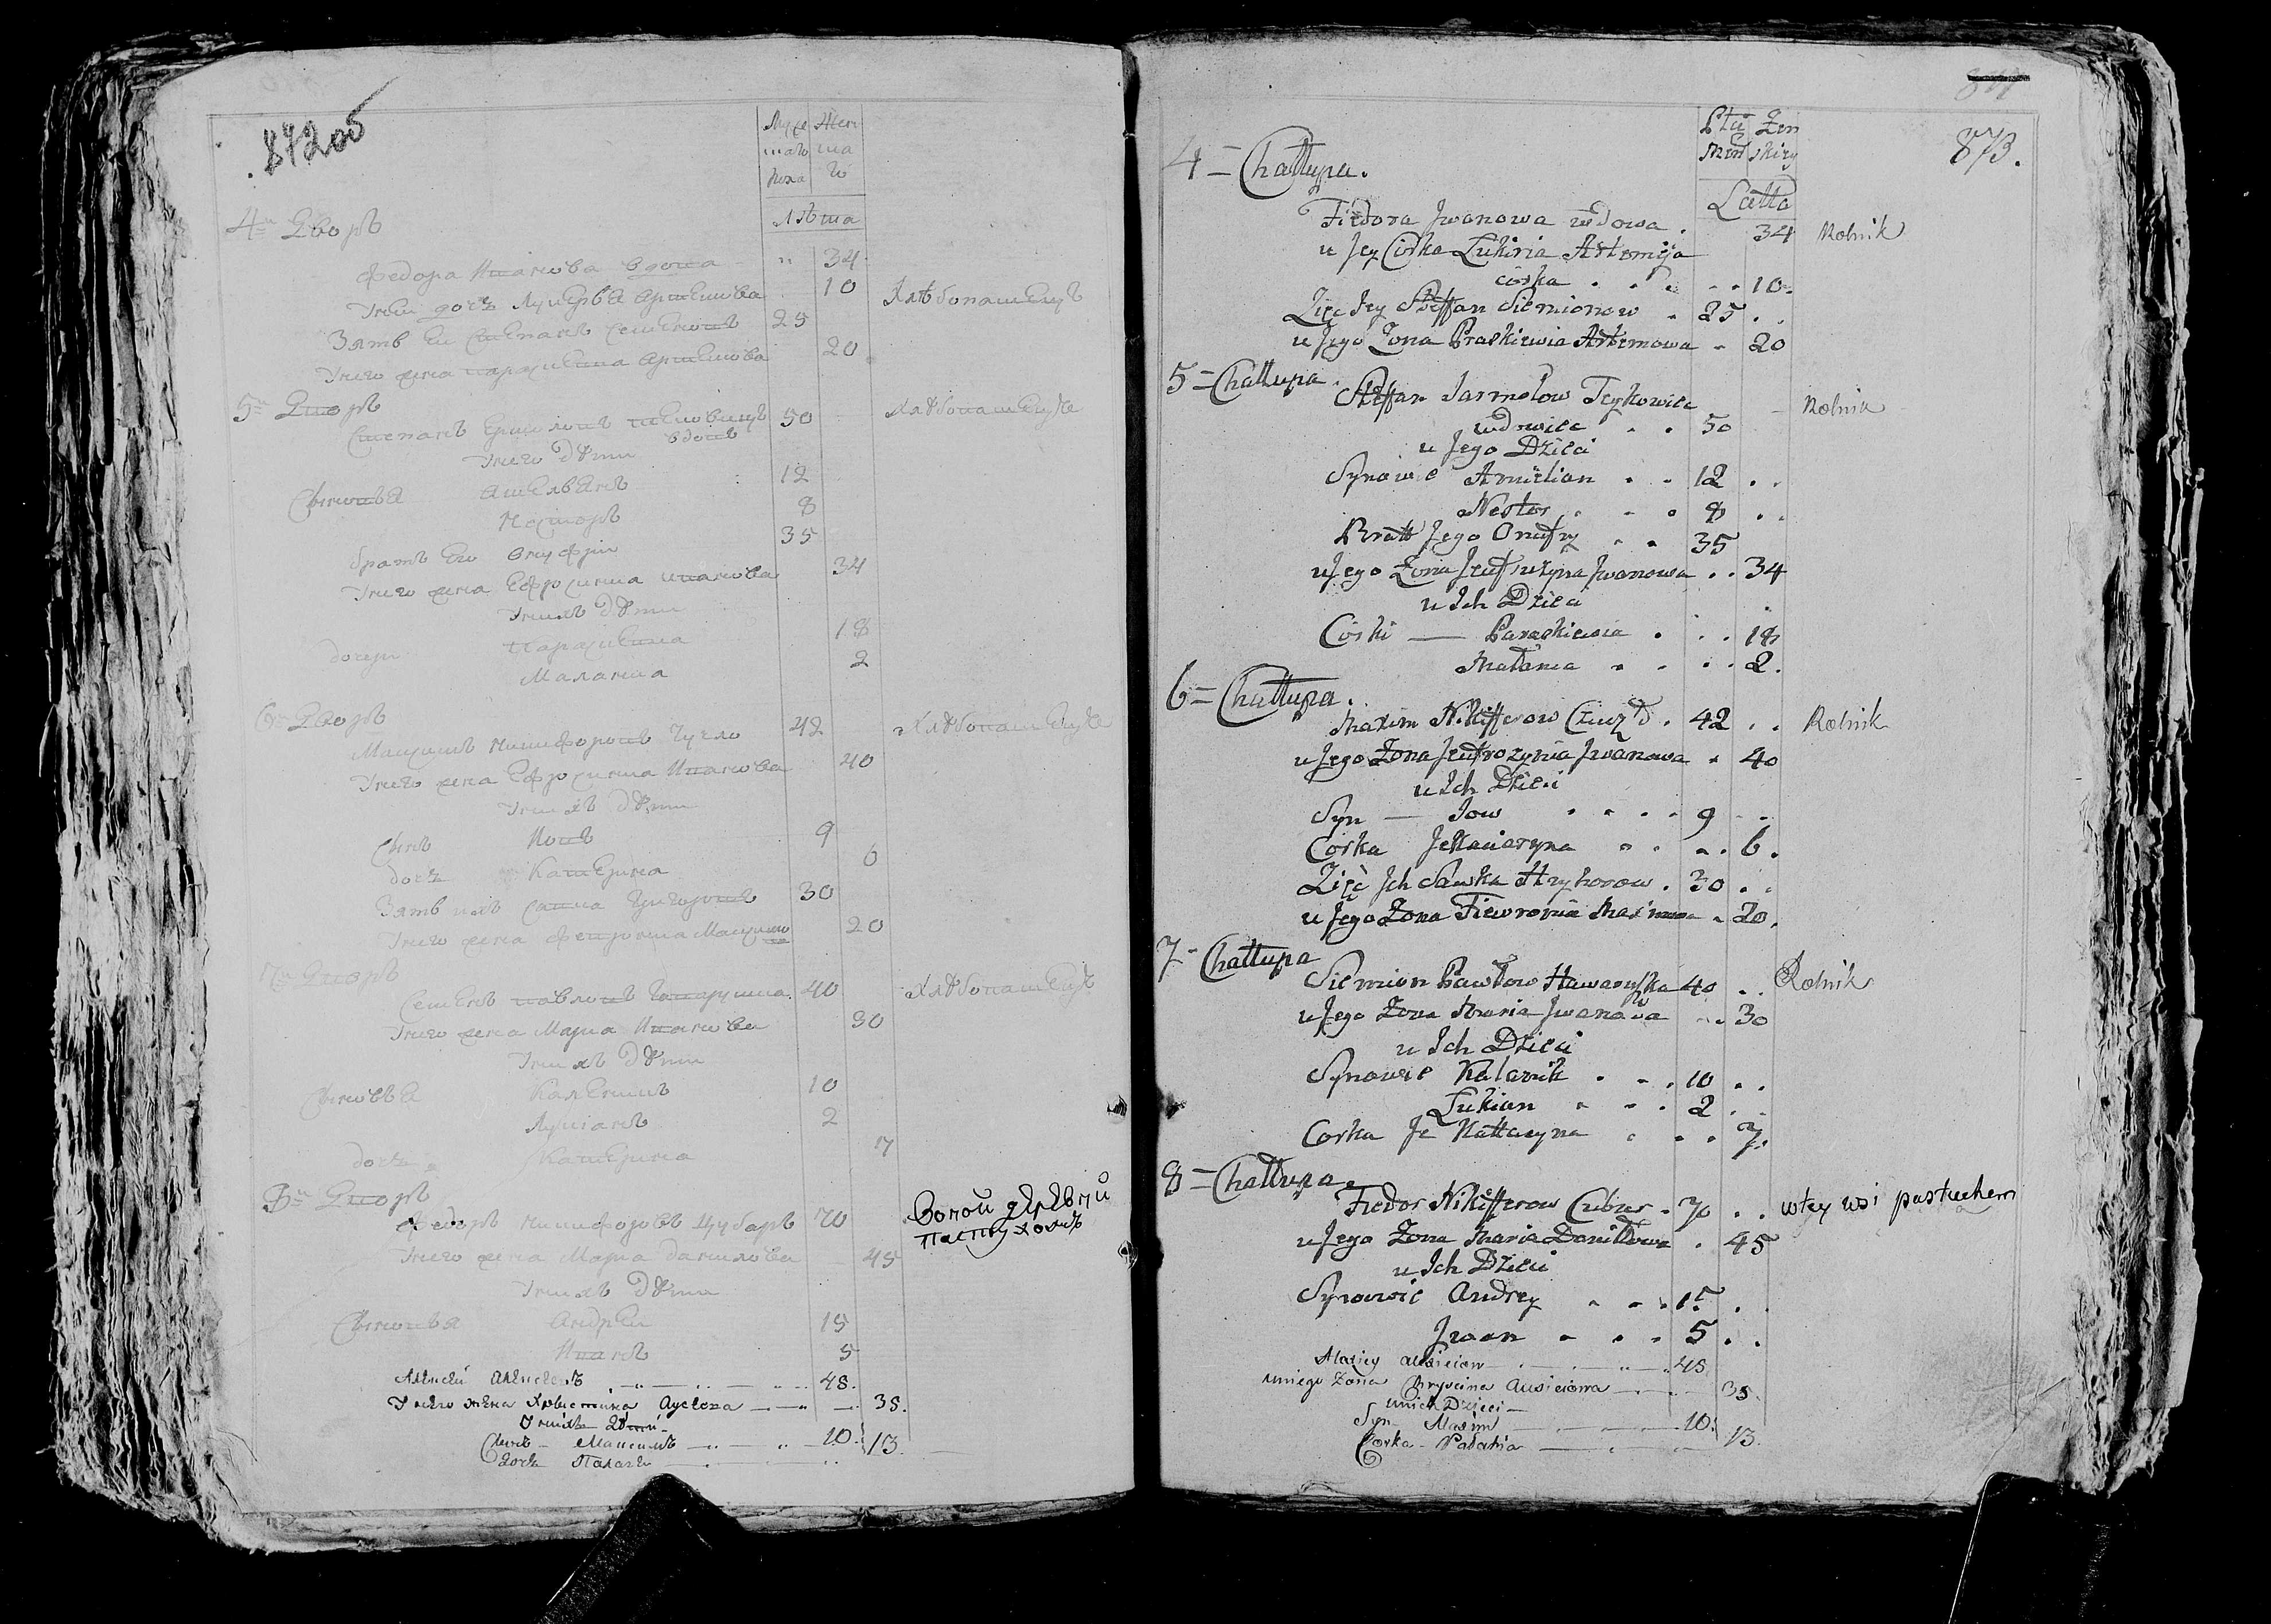 872об
Муже Жен
ска
Пола
Лѣта
4й Дворъ
Федора Иванова вдова " 34
У ней дочь Лукеръя Артемова 10 Хлѣбопашецъ
Зять ей Степанъ Семеновъ 25
У него жена Параскевиа Артемова 20
5й Дворъ
Степанъ Ермоловъ 50 Хлѣбопашецъ
вдовъ
У него дѣти
Сыновья Амельянъ 12
Несторъ 8
братъ Его Онуфрій 35
У него жена Ефросинья Иванова 34
У нихъ дѣти
дочери Параскевиа 18
Маланиа 2
6й Дворъ
Максимъ Никифоровъ Чухло 42 Хлѣбопашецъ
У него жена Ефросиниа Иванова 40
У нихъ дѣти
Сынъ Иовъ 9
дочь Катерина 6
Зять ихъ Савка Григоровъ 30
У него жена Феврониа Максимо 20
7й Дворъ
Семенъ Павловъ 40 Хлѣбопашецъ
У него жена Мариа Иванова 30
У нихъ дѣти
Сыновья Каленикъ 10
Лукіанъ 2
дочь Катерина 7
8й Дворъ
Федоръ Никифоровъ Цубаръ 70 Вотой деревни
пастухомъ
У него жена Мариа Данилова 45
У нихъ дѣти
Сыновья Андрей 15
Иванъ 5
Алексей Алексеевъ 48.
У него жена Христина 38.
У нихъ Дѣти
Сынъ Максимъ 10.
Дочь Палагія 13.
873.
Płci Żen
Męs skiey
Latta
4 = Chałłupa.
Fiedora Jwanowa wdowa . 34 Rolnik
u Jey Córka Łukiria Artemija
córka . . . . . 10.
Zięć Jey Steffan Siemionow . 25 . .
u Jego Żona Praskiewia Artemowa . 20
5 = Chałłupa.
Steffan Jarmołow Rolnik
wdowiec . . 50
u Jego Dzieci
Synowie Amielian . . 12 . .
Nester . . . 8 . .
Bratt Jego Onufry . . 35
u Jego Żona Jeufruzyna Jwanowa . . 34
u Ich Dzieci
Córki — Paraskiewia . . . 18
Małania . . . . 2.
6 = Chałłupa.
Maxim Nikifferow . 42 . . Rolnik
u Jego Żona Jeufrozynia Jwanowa . 40
u Ich Dzieci
Syn — Jow . . . . 9 . .
Corka Jekaciaryna . . . . 6.
Zięć Jch Sawka Hryhorow . 30 . .
u Jego Żona Fiewronia Maximowa . 20.
7 = Chałłupa
Siemion Pawłow 40 . . Rolnik
u Jego Żona Maria Jwanowa . . 30
u Ich Dzieci
Synowie Kalanik . . . 10 . .
Łukian . . . 2 . .
Corka Je Kattaryna . . . 7.
8 = Chałłupa.
Fiedor Nikifferow Cubur . 70 . . wtey wsi pastuchem
u Jego Żona Maria Daniłowa . 45
u Ich Dzieci
Synowie Andrey . . . 15 .
Jwan . . . . 5 . .
48
uniego Żona 38.
unich Dzieci —
Syn Maxim 10.
Corka - Pałahia 13.